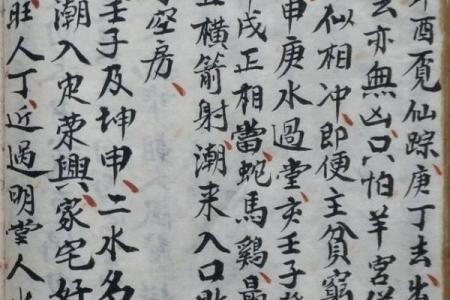 酉覔仙踪庚丁去
去亦無凶只怕羊宮
似相冲即便主貧窮
申庚水過堂亥壬子
戌正相當蛇馬鷄最
横箭射潮来入口
守空房
壬子及坤申二水名
潮入史荣興家宅好
旺人丁近過明堂人